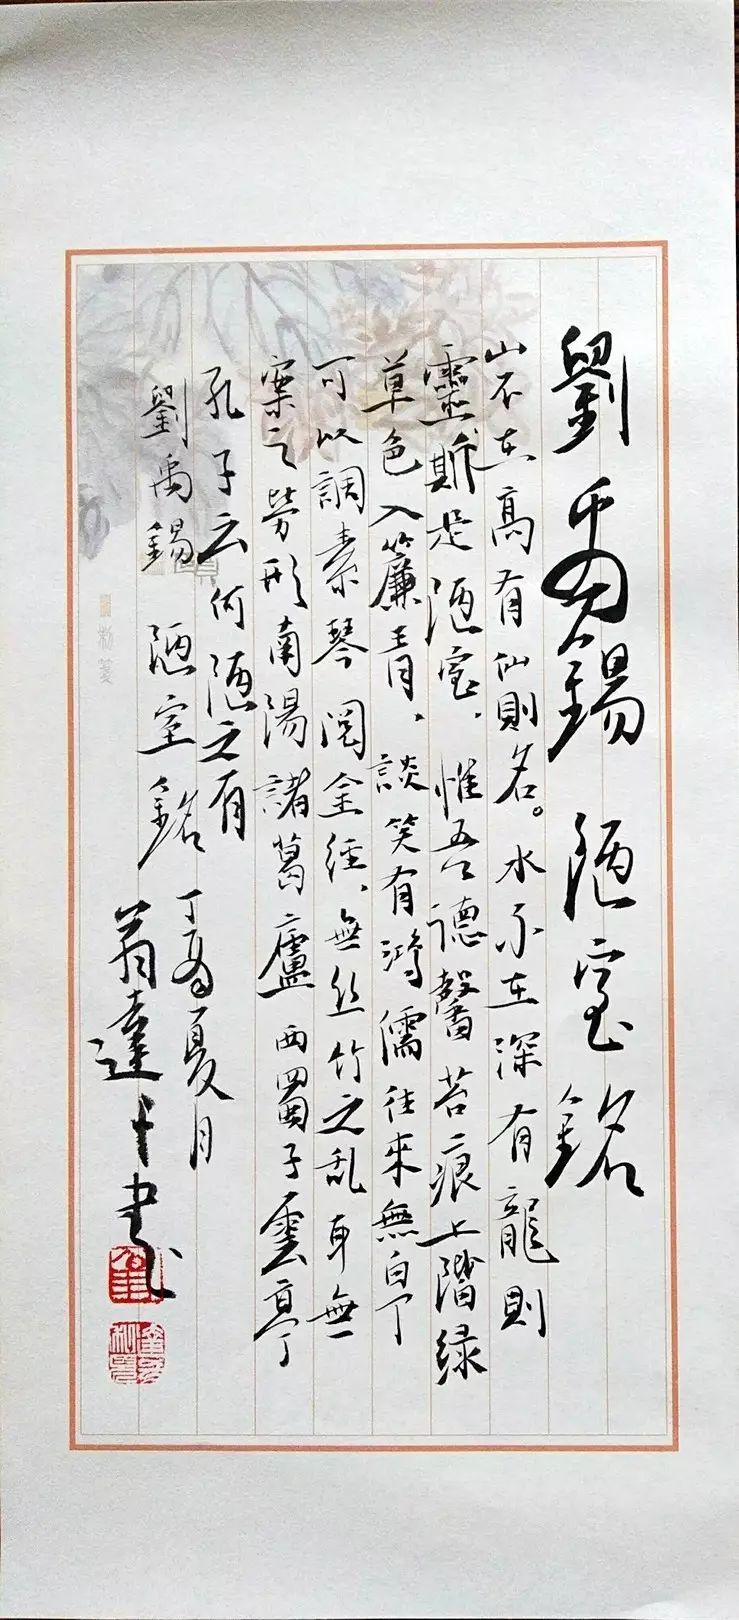 劉禹錫 陋室銘
山不在高有仙則名。水不在深有龍則
靈斯是陋室、惟吾德馨苔痕上階绿
草色入簾青、談笑有鴻儒往來無白丁
可以調素琴閱金經、無丝竹之乱耳無
案之勞形南陽諸葛廬西蜀子雲亭
孔子云何陋之有
劉禹錫 陋室銘 丁亥夏月
翁達
書